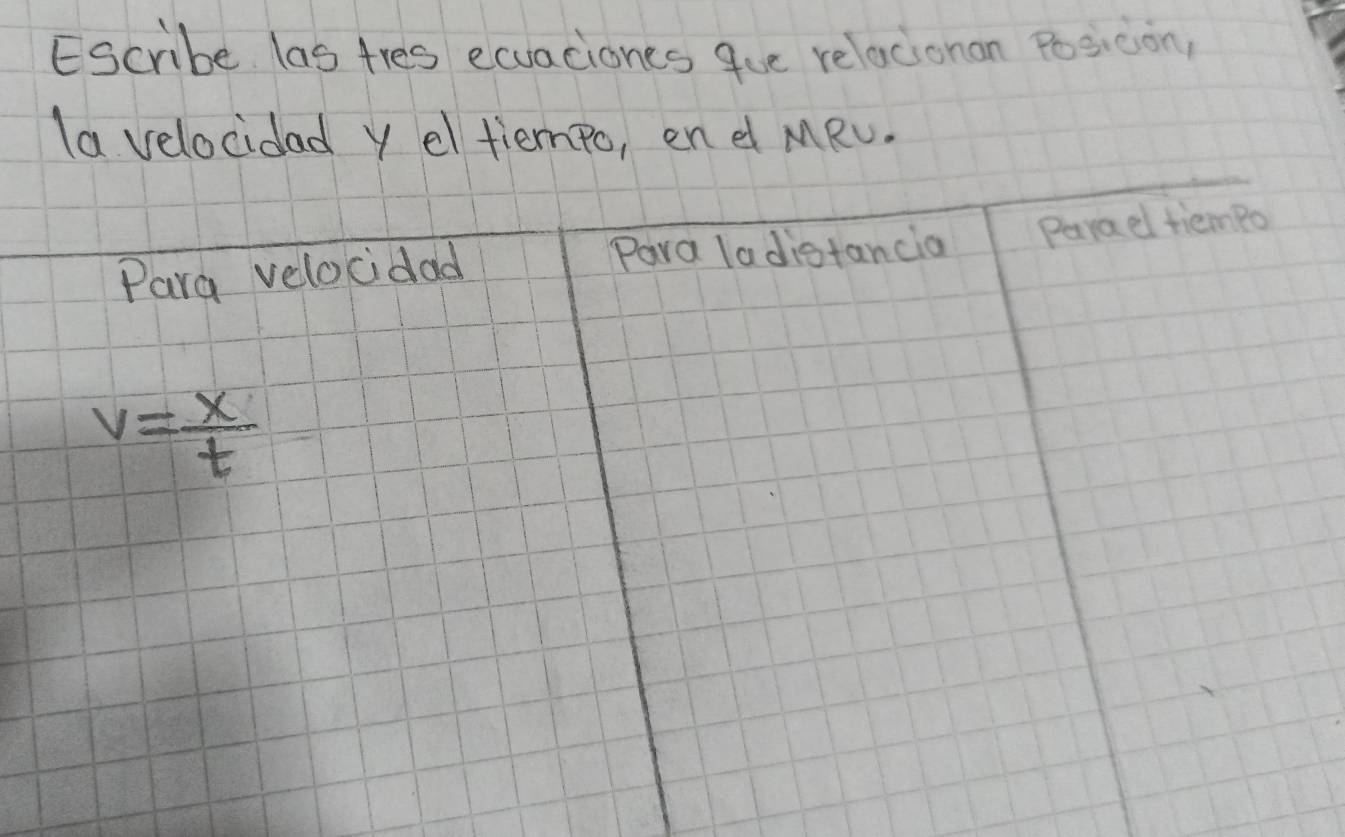 Escribe las tres ecuaciones que relacionan Posición,
la velocidad y el tiempo, en el MRU.
Para velocidad
Para la distancia
Para el tiempo
v = x/t